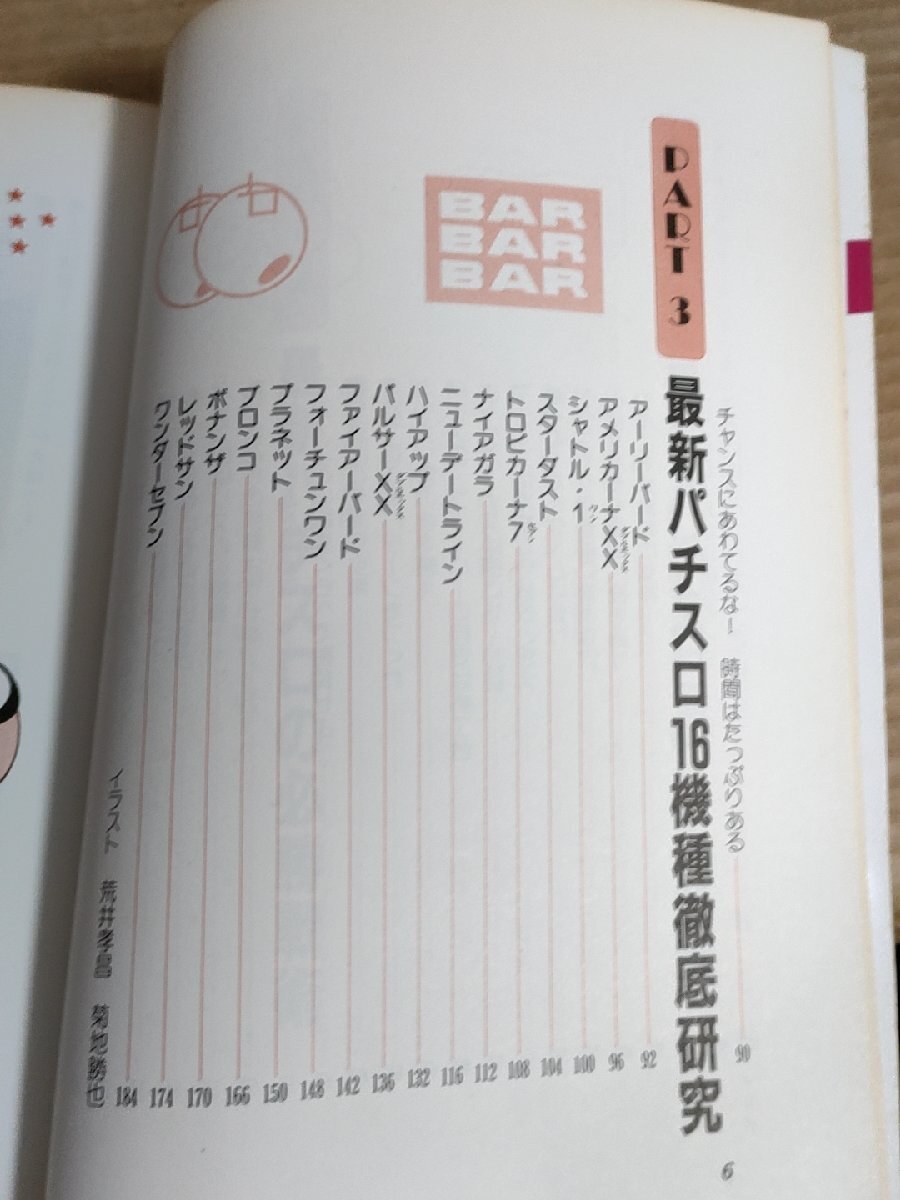 チャンスにあわてるな! 時間はたっぷりある 90
PART 3 最新パチスロ16機種徹底研究
BAR
BAR
BAR
アーリーバード 92
アメリカーナXX 96
シャトル・1 100
スターダスト 104
トロピカーナ7 108
ナイアガラ 112
ニューデートライン 116
ハイアップ 132
パルサーXX 136
ファイアーバード 142
フォーチュンワン 148
プラネット 150
ブロンコ 166
ボナンザ 170
レッドサン 174
ワンダーセブン 184
イラスト 荒井孝昌 菊地勝也
6